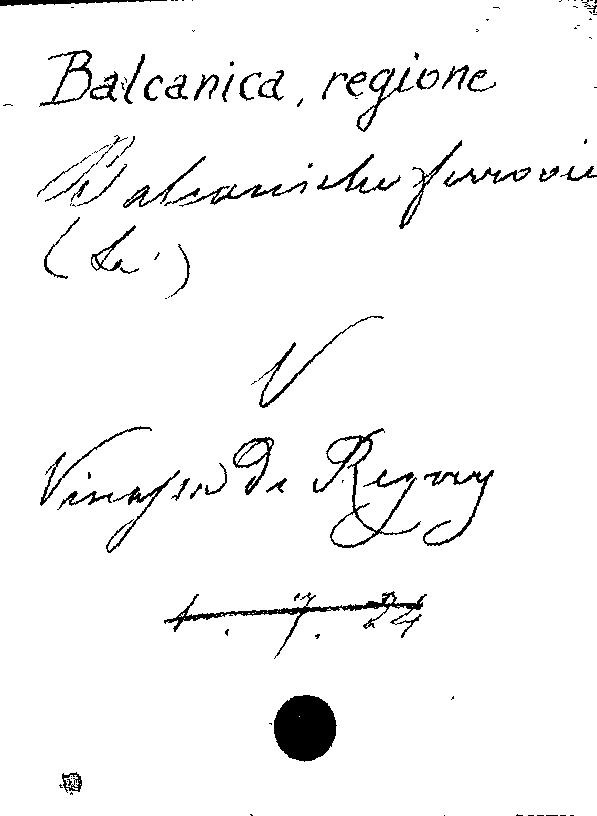 Balcanica, regione
Balcaniche ferrovie
(Le)
V
Vinassa De Regny
1. 7. 24